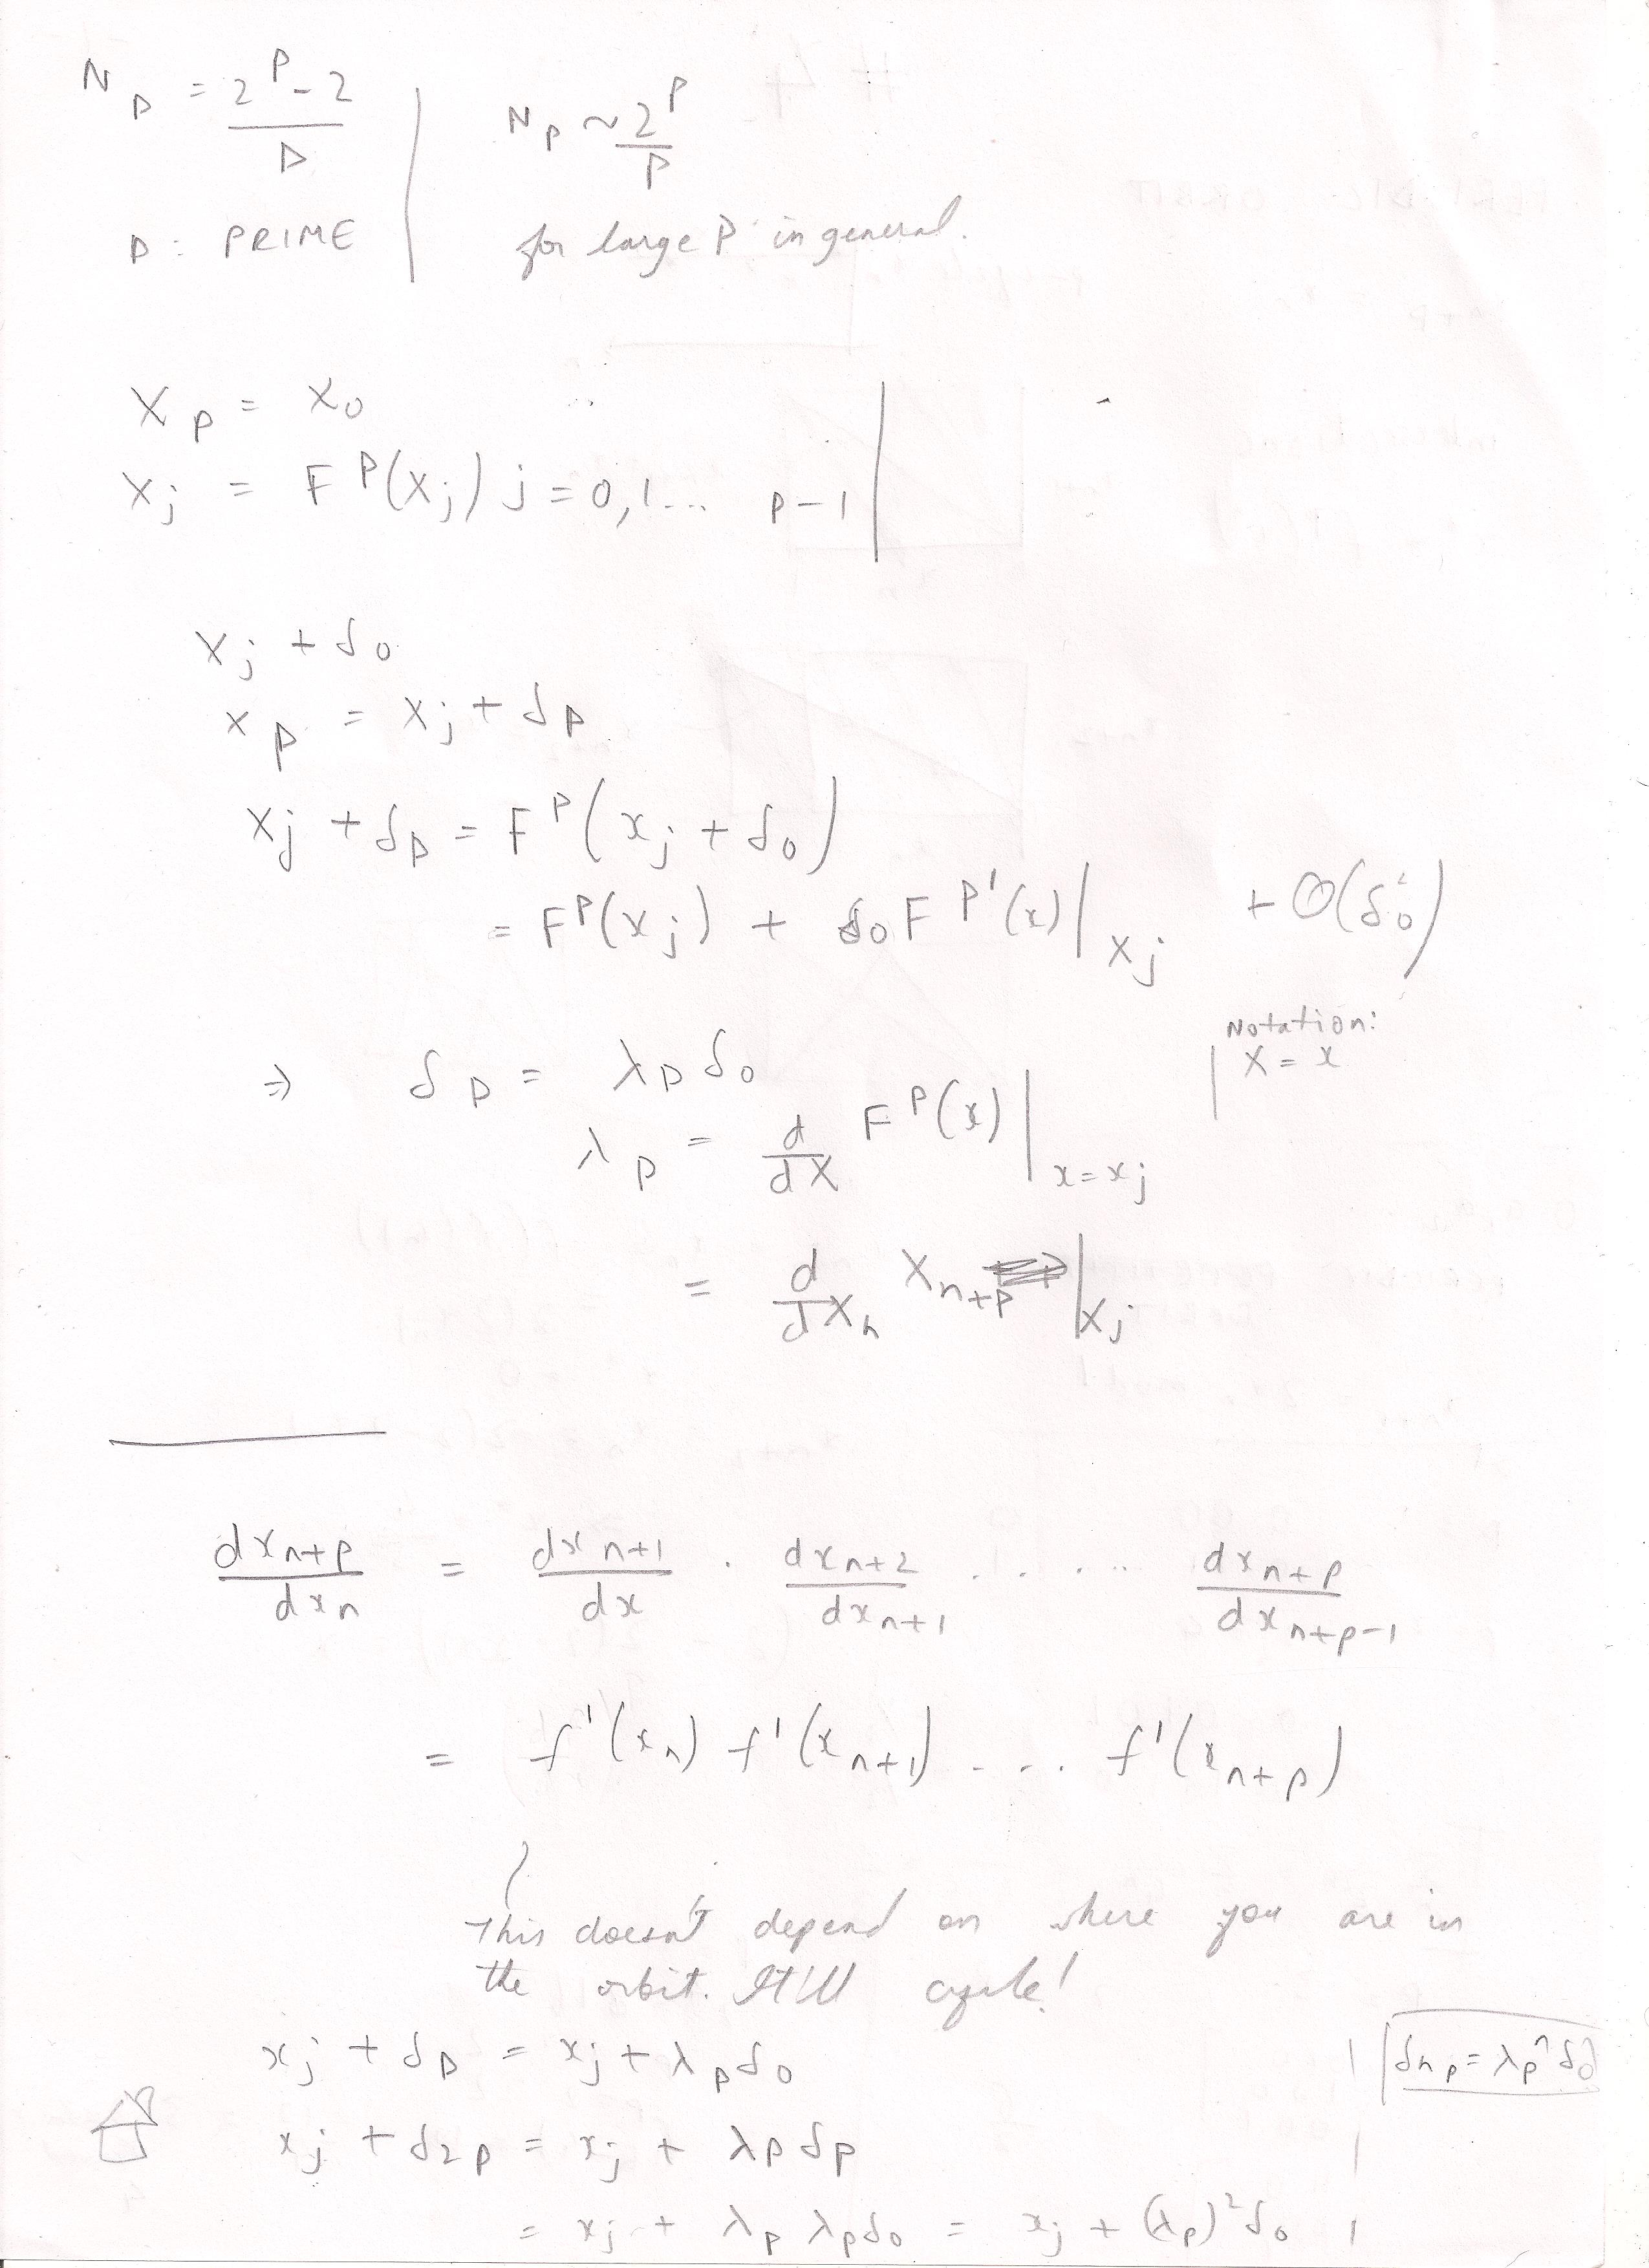 N_p = (2^p - 2)/p | N_p ~ 2^p/p
p : PRIME | for large p in general.
x_p = x_0
x_j = F^p(x_j) j = 0,1... p-1
x_j + δ_0
x_p = x_j + δ_p
x_j + δ_p = F^p(x_j + δ_0)
= F^p(x_j) + δ_0 F^p'(x)|_x_j + O(δ_0^2)
Notation:
x = x
⇒ δ_p = λ_p δ_0
λ_p = d/dx F^p(x)|_x=x_j
= d/dx_n x_n+p |_x_j
dx_n+p/dx_n = dx_n+1/dx · dx_n+2/dx_n+1 ..... dx_n+p/dx_n+p-1
= f'(x_n) f'(x_n+1) .... f'(x_n+p)
This doesn't depend on where you are in
the orbit. Still cycle!
x_j + δ_p = x_j + λ_p δ_0
δ_np = λ_p^n δ_0
x_j + δ_2p = x_j + λ_p δ_p
= x_j + λ_p λ_p δ_0 = x_j + (λ_p)^2 δ_0